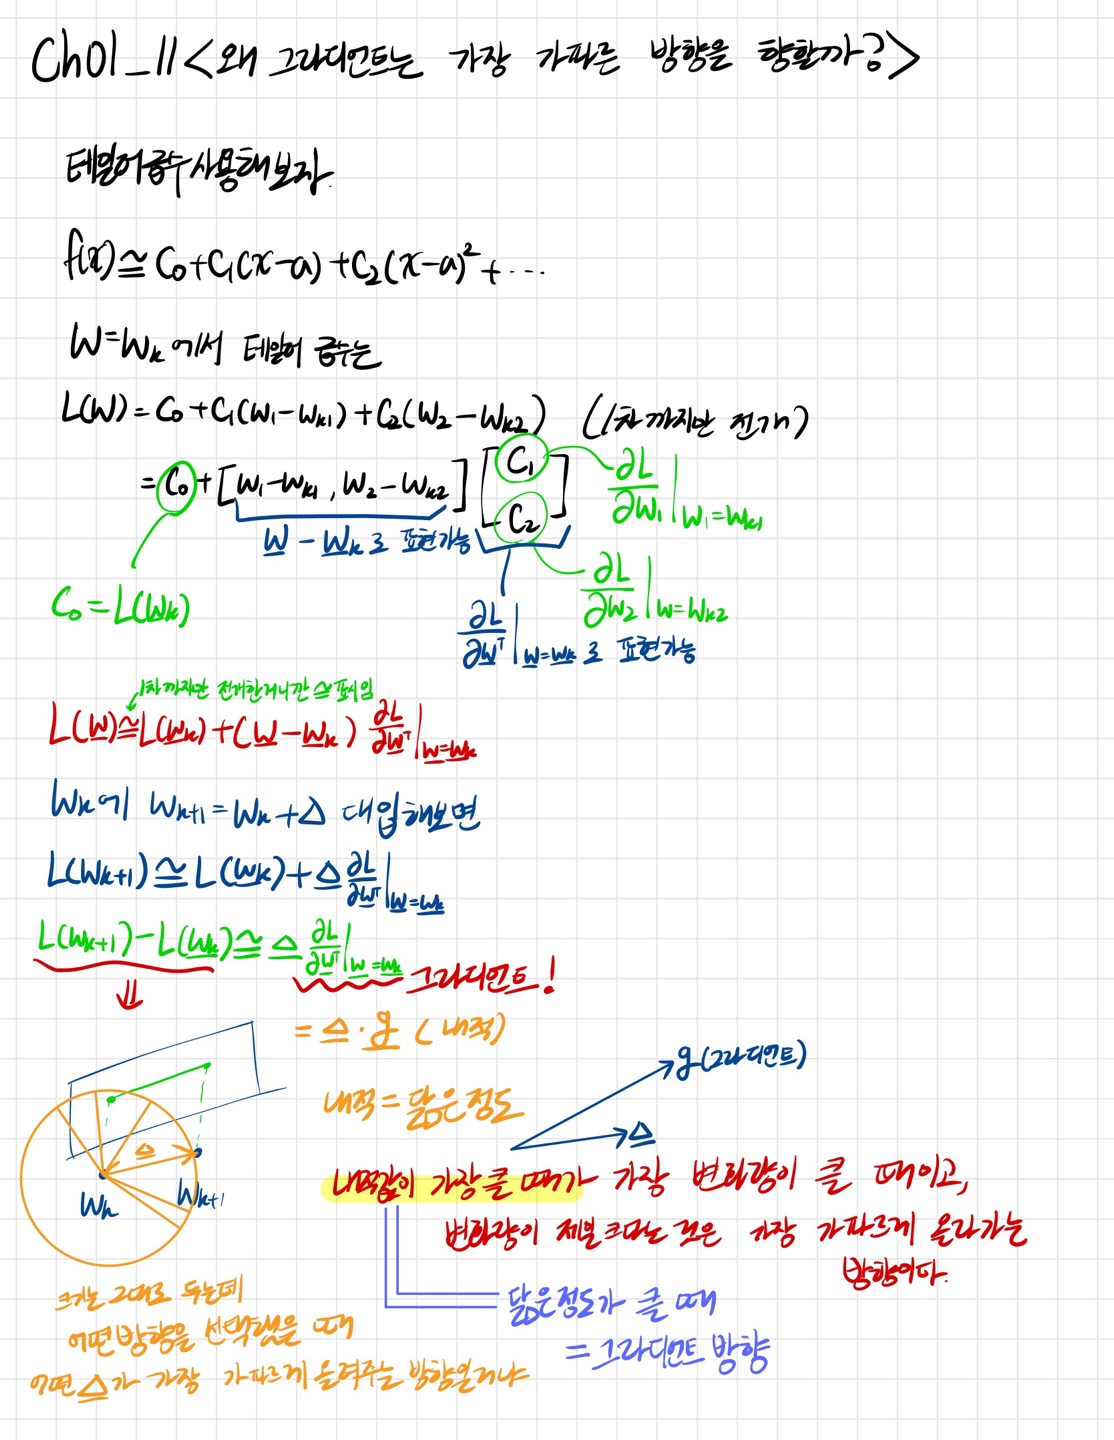 Ch01_11 <왜 그라디언트는 가장 가파른 방향을 향할까?>
테일러급수 사용해보자.
f(x)≅C₀+C₁(x-a)+C₂(x-a)²+⋯
W=Wₖ에서 테일러 급수는
L(W)=C₀+C₁(W₁-Wₖ₁)+C₂(W₂-Wₖ₂) (1차까지만 전개)
=C₀+[W₁-Wₖ₁, W₂-Wₖ₂][C₁ C₂]
∂L/∂W₁|W₁=Wₖ₁
W-Wₖ로 표현가능
∂L/∂W₂|W=Wₖ₂
C₀=L(Wₖ)
∂L/∂Wᵀ|W=Wₖ로 표현가능
1차까지만 전개한거니깐 ≅표시임
L(W)≅L(Wₖ)+(W-Wₖ)∂L/∂Wᵀ|W=Wₖ
Wₖ에 Wₖ₊₁=Wₖ+Δ 대입해보면
L(Wₖ₊₁)≅L(Wₖ)+Δ∂L/∂Wᵀ|W=Wₖ
L(Wₖ₊₁)-L(Wₖ)≅Δ∂L/∂Wᵀ|W=Wₖ 그라디언트!
⇓
=Δ·g (내적)
g(그라디언트)
내적=닮은정도
Δ
Δ
Wₖ
Wₖ₊₁
내적값이 가장 클 때가 가장 변화량이 클 때이고,
변화량이 제일 크다는 것은 가장 가파르게 올라가는
방향이다.
닮은정도가 클 때
=그라디언트 방향
크기는 그대로 두는데
어떤방향을 선택했을 때
어떤 Δ가 가장 가파르게 올려주는 방향일거냐